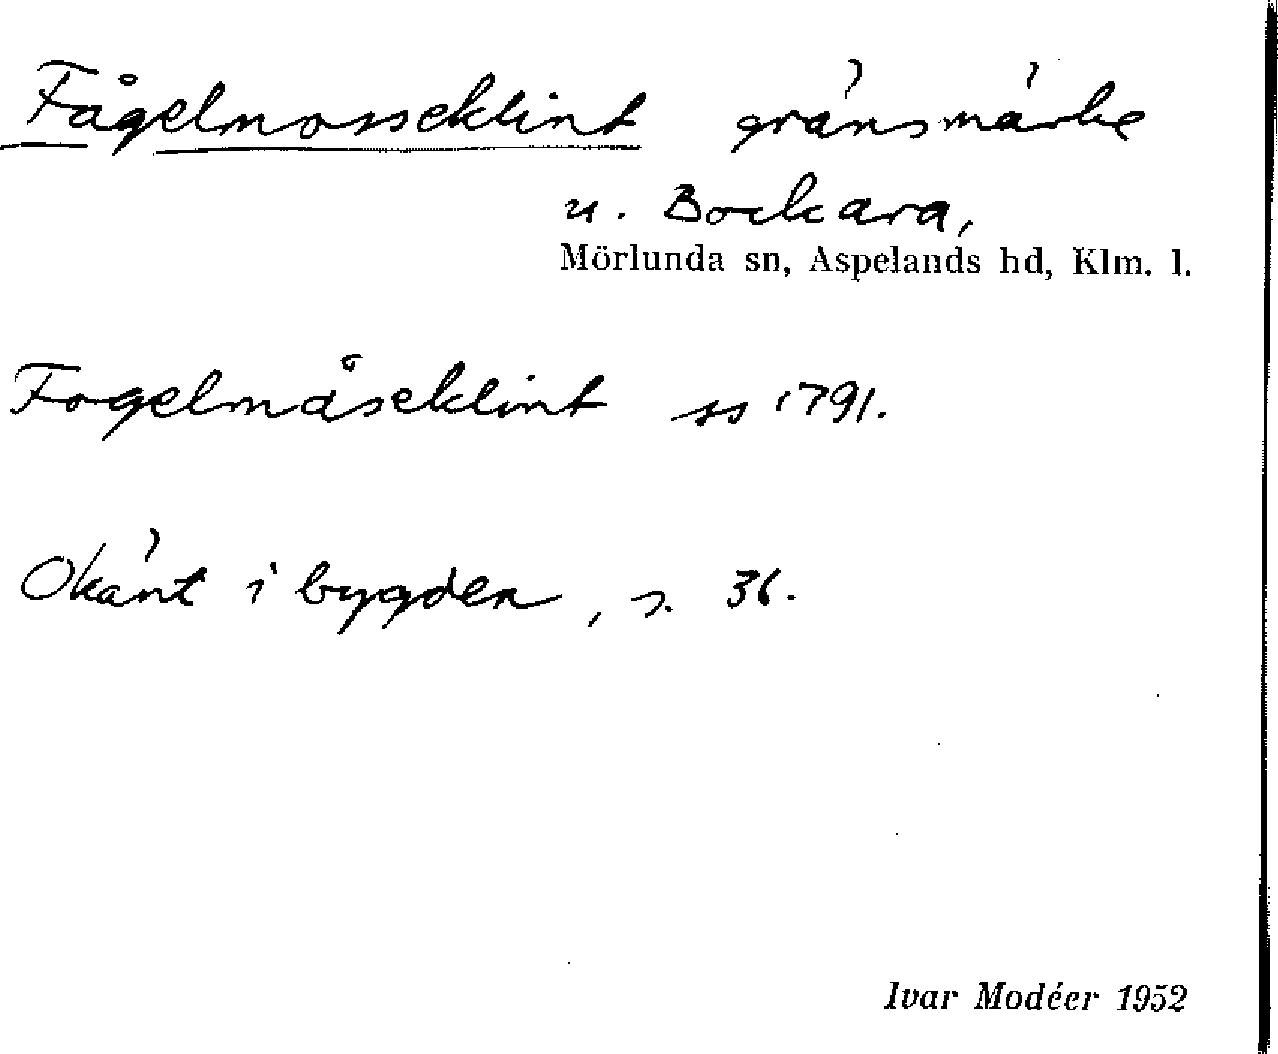 Fågelmosseklint gränsmärke
u. Bockara,
Mörlunda sn, Aspelands hd, Klm. l.
Fogelmåseklint ss 1791.
Okänt i bygden, s. 36.
Ivar Modéer 1952